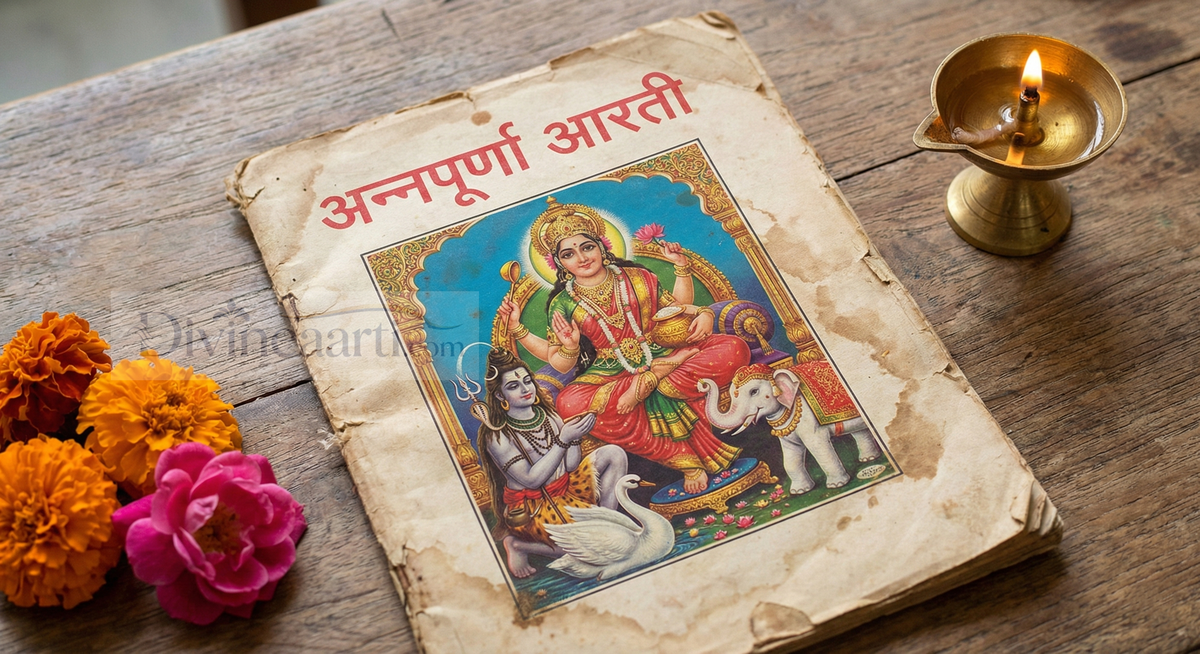 अन्नपूर्णा आरती
Divineaarti.com